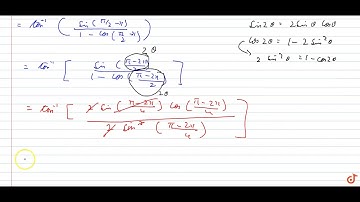 = tan⁻¹ ( sin (π/2 - x) / 1 - cos (π/2 - x) )
sin2θ = 2 sinθ cosθ
cos2θ = 1 - 2 sin²θ
2 sin²θ = 1 - cos2θ
2θ
= tan⁻¹ [ sin (π-2x / 2) / 1 - cos (π-2x / 2) ]
2θ
= tan⁻¹ [ 2 sin (π-2x / 4) cos (π-2x / 4) / 2 sin² (π-2x / 4) ]
=